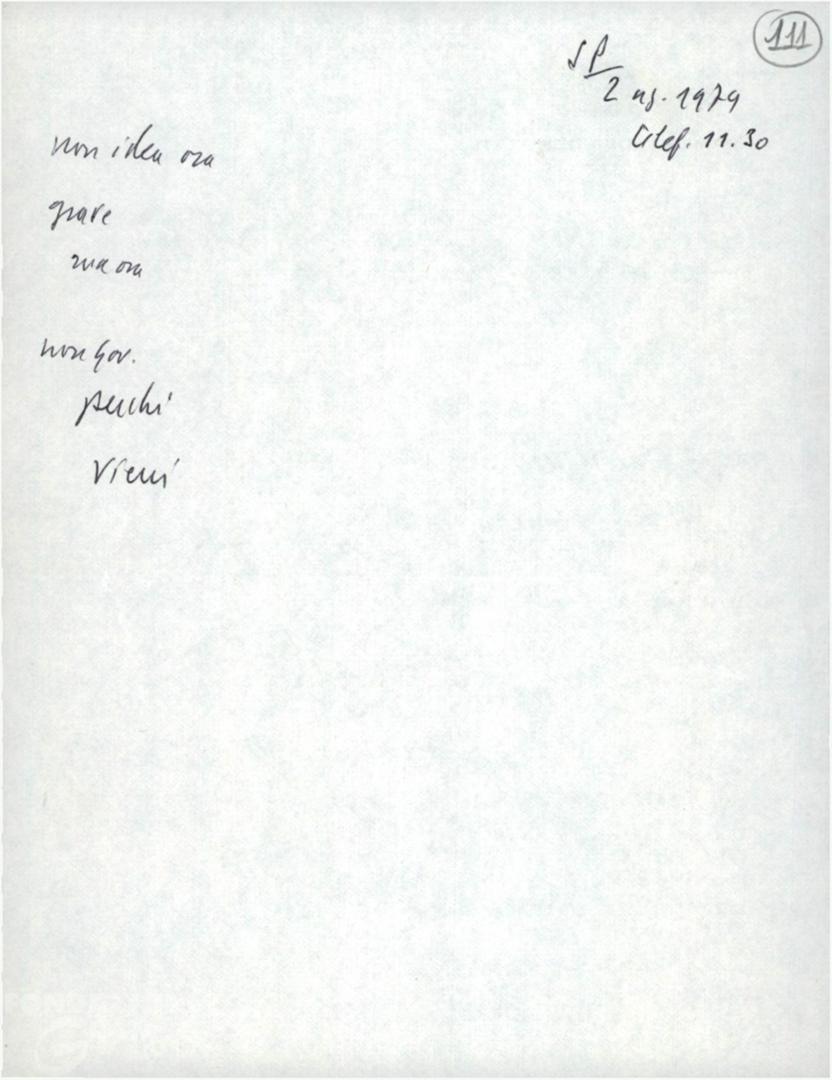 111
SP/
2 ag. 1979
telef. 11.30
non idea ora
grave
ma ora
non gov.
perché
Vieni